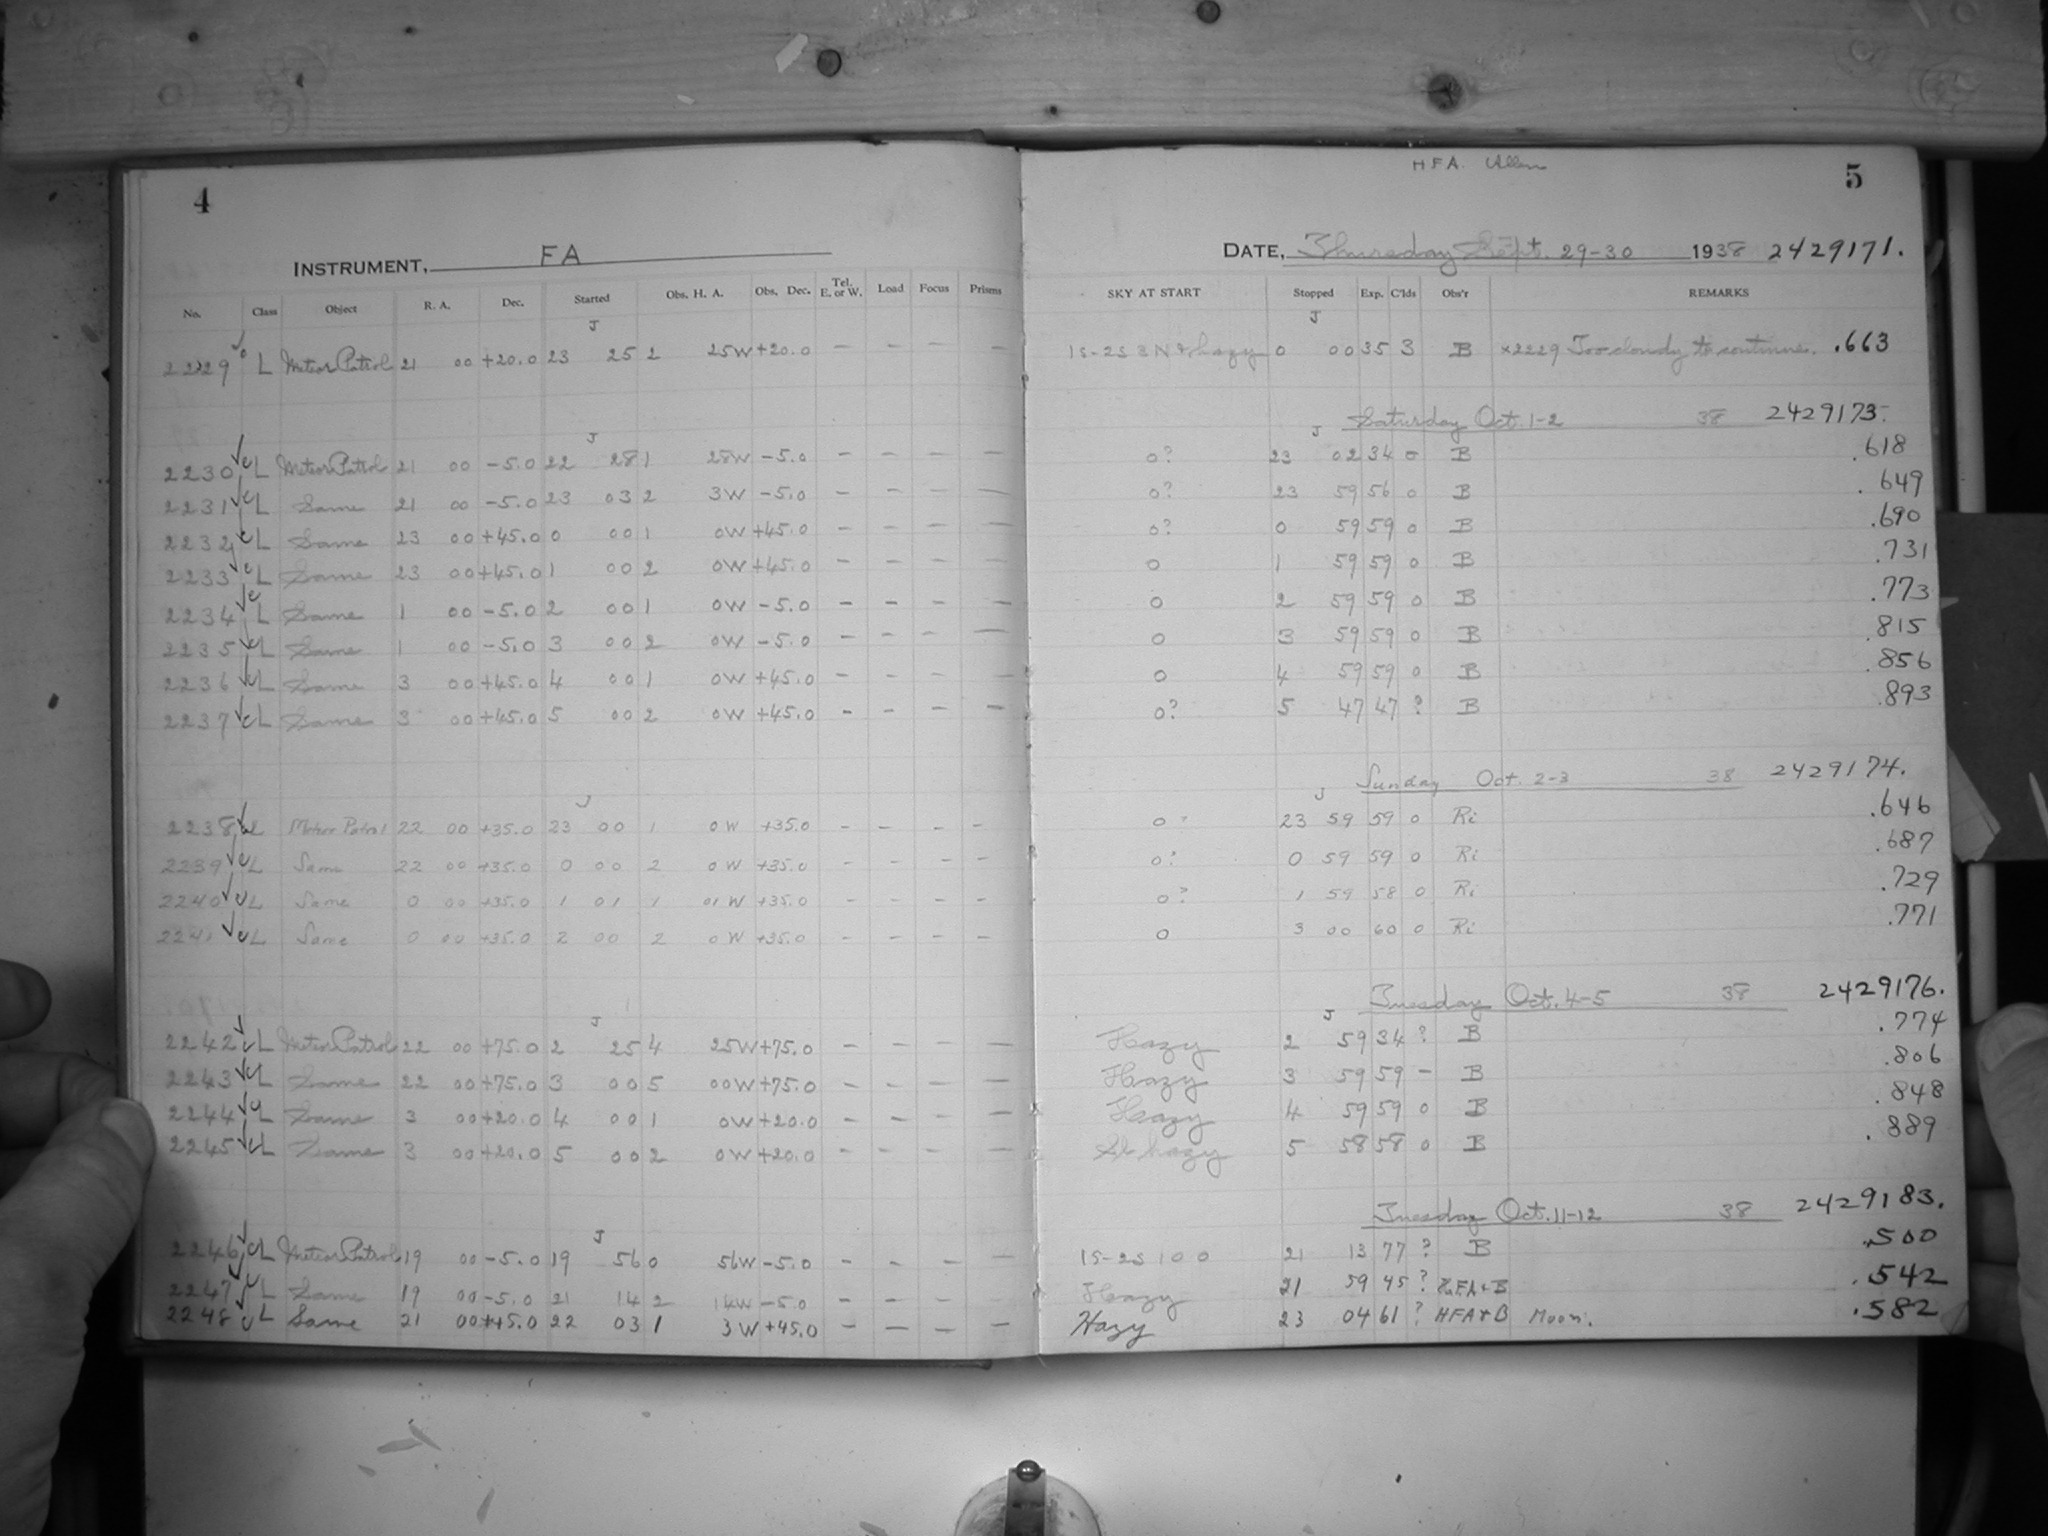 4
INSTRUMENT, FA
No. Class Object R. A. Dec. Started Obs. H. A. Obs. Dec. Tel. E. or W. Load Focus Prisms
J
2229 L Meteor Patrol 21 00 +20.0 23 25 2 25W +20.0 — — — —
J
2230 L Meteor Patrol 21 00 -5.0 22 28 1 28W -5.0 — — — —
2231 L Same 21 00 -5.0 23 03 2 3W -5.0 — — — —
2232 L Same 23 00 +45.0 0 00 1 0W +45.0 — — — —
2233 L Same 23 00 +45.0 1 00 2 0W +45.0 — — — —
2234 L Same 1 00 -5.0 2 00 1 0W -5.0 — — — —
2235 L Same 1 00 -5.0 3 00 2 0W -5.0 — — — —
2236 L Same 3 00 +45.0 4 00 1 0W +45.0 — — — —
2237 L Same 3 00 +45.0 5 00 2 0W +45.0 — — — —
J
2238 L Meteor Patrol 22 00 +35.0 23 00 1 0W +35.0 — — — —
2239 L Same 22 00 +35.0 0 00 2 0W +35.0 — — — —
2240 L Same 0 00 +35.0 1 01 1 01W +35.0 — — — —
2241 L Same 0 00 +35.0 2 00 2 0W +35.0 — — — —
J
2242 L Meteor Patrol 22 00 +75.0 2 25 4 25W +75.0 — — — —
2243 L Same 22 00 +75.0 3 00 5 00W +75.0 — — — —
2244 L Same 3 00 +20.0 4 00 1 0W +20.0 — — —
2245 L Same 3 00 +20.0 5 00 2 0W +20.0 — — — —
J
2246 L Meteor Patrol 19 00 -5.0 19 56 0 56W -5.0 — — — —
2247 L Same 19 00 -5.0 21 14 2 14W -5.0 — — — —
2248 L Same 21 00 +45.0 22 03 1 3W +45.0 — — — —
HFA. Allen
5
DATE, Thursday Sept. 29-30 1938 2429171.
SKY AT START Stopped Exp. C'lds Obs'r REMARKS
J
1S-2S 3N & hazy 0 00 35 3 B x2229 Too cloudy to continue. .663
Saturday Oct. 1-2 38 2429173.
J
0? 23 02 34 0 B .618
0? 23 59 56 0 B .649
0? 0 59 59 0 B .690
0 1 59 59 0 B .731
0 2 59 59 0 B .773
0 3 59 59 0 B .815
0 4 59 59 0 B .856
0? 5 47 47 ? B .893
Sunday Oct. 2-3 38 2429174.
J
0? 23 59 59 0 Ri .646
0? 0 59 59 0 Ri .687
0? 1 59 58 0 Ri .729
0 3 00 60 0 Ri .771
Tuesday Oct. 4-5 38 2429176.
J
Hazy 2 59 34 ? B .774
Hazy 3 59 59 — B .806
Hazy 4 59 59 0 B .848
Sl hazy 5 58 58 0 B .889
Tuesday Oct. 11-12 38 2429183.
1S-2S 1 0 0 21 13 77 ? B .500
Hazy 21 59 45 ? HFA+B .542
Hazy 23 04 61 ? HFA+B Moon. .582